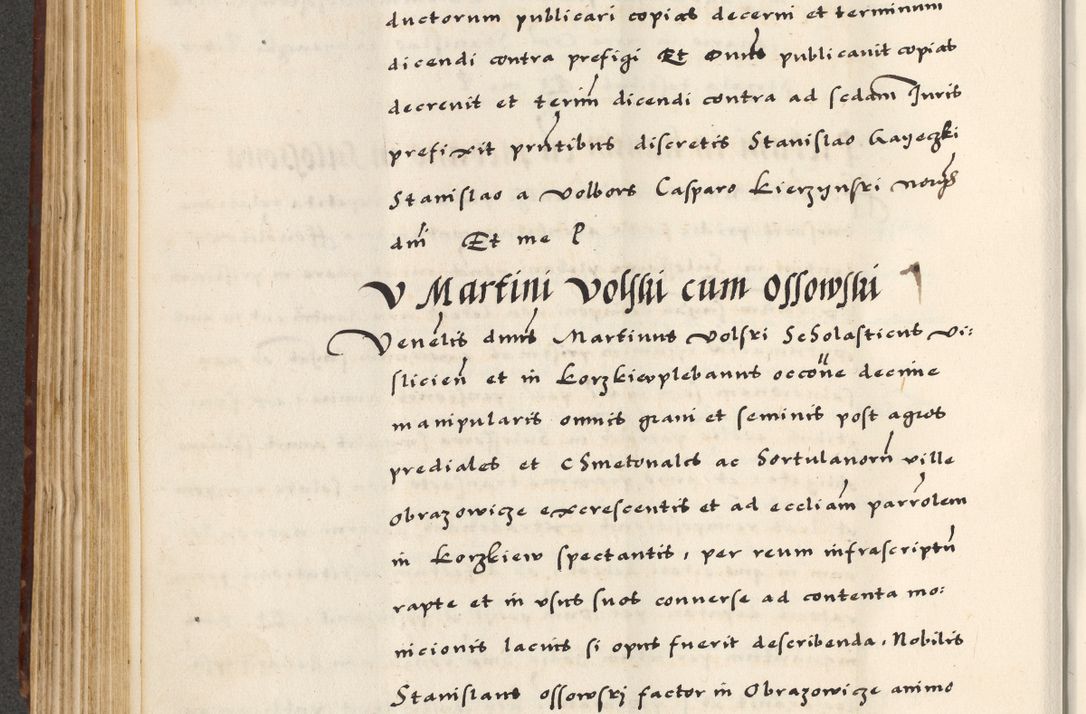 ductorum publicari copias decerni et terminum
dicendi contra prefigi Et Dnus publicavit copias
decrevit et termin dicendi contra ad scdam Iuris
prefixit prntibus discretis Stanislao Gayeczki
Stanislao a Volbors Casparo Kierzynski notarys
dni Et me P
V Martini Volski cum Ossowski
Venelis dnus Martinus Volski Scholasticus Vi:
slicien et in Korzkiew plebanus occone decime
manipularis omnis grani et seminis post agros
prediales et Cmetonales ac hortulanorn ville
obrazowicze excrescentis et ad eccliam parrolem
in Korzkiew spectantis, per reum infrascriptn
rapte et in usus suos converse ad contenta mo:
nicionis lacius si opus fuerit describenda. Nobilis
Stanislaus Ossowski factor in Obrazowicze animo